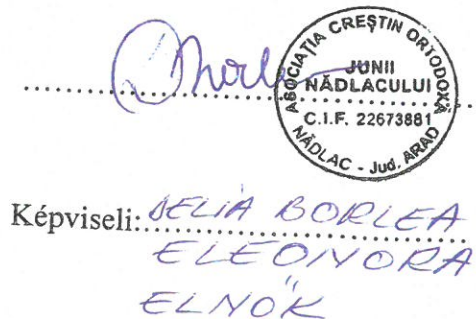 ASOCIAȚIA CREȘTIN ORTODOXĂ
JUNII
NĂDLACULUI
C.I.F. 22673881
NĂDLAC - Jud. ARAD
Képviseli: DELIA BORLEA
ELEONORA
ELNÖK